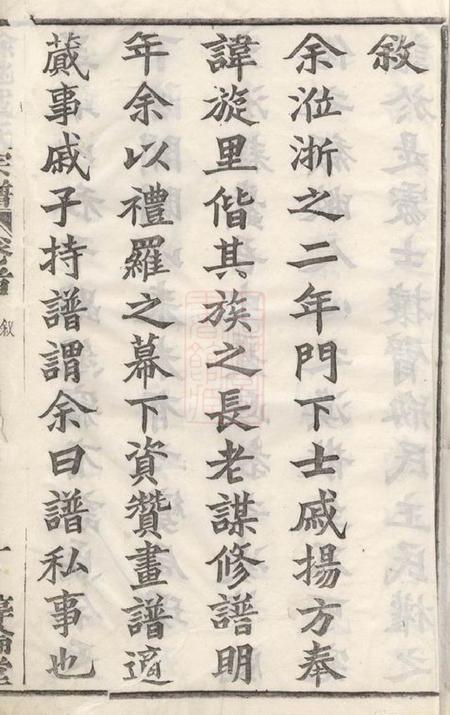 敘
余涖浙之二年門下士戚揚方奉
諱旋里偕其族之長老謀修譜明
年余以禮羅之幕下資贊畫譜適
蕆事戚子持譜謂余曰譜私事也
敘